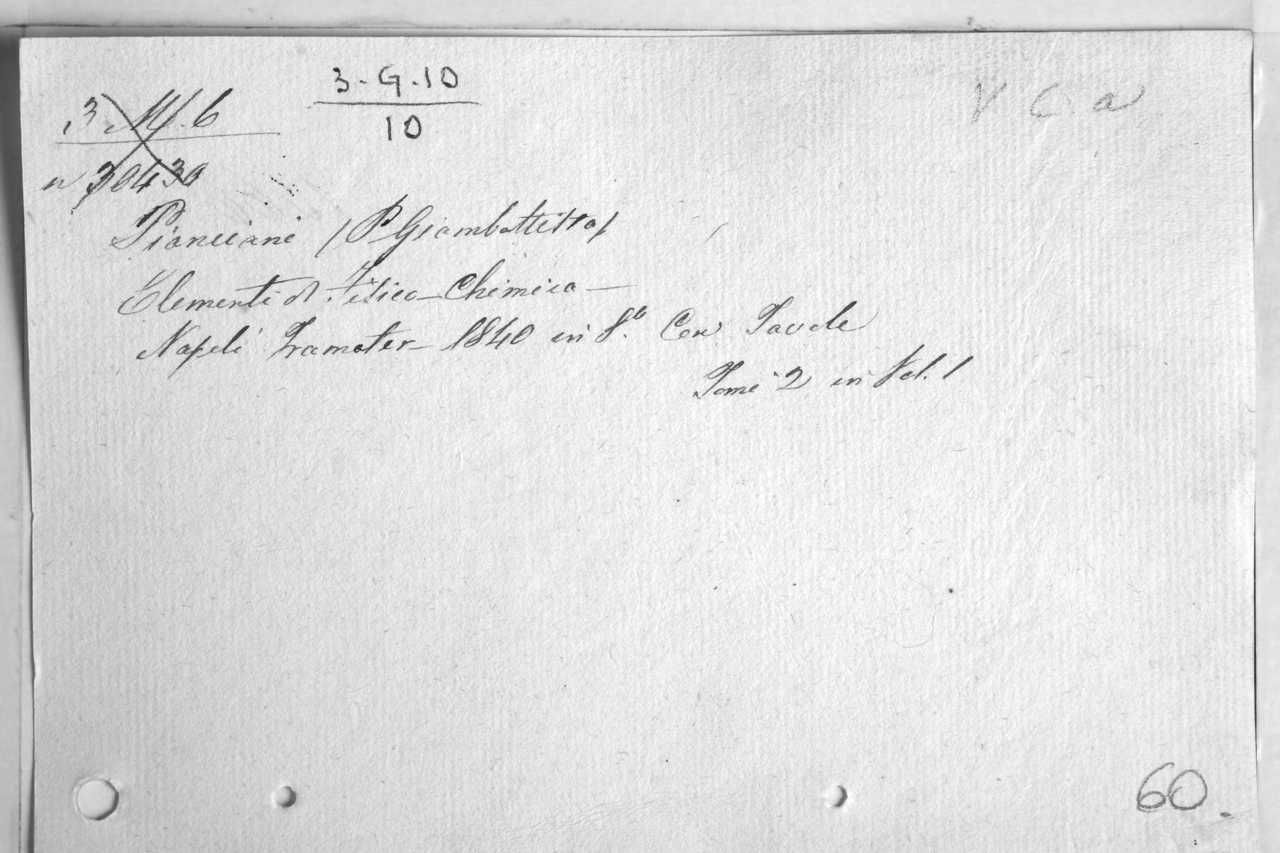 3-G-10
10
3. M. 6
n 30430
V C a
Pianciani / P. Giambattista /
Elementi di Fisico-Chimica -
Napoli Tramater - 1840 in 8.° Con Tavole
Tomi 2 in Vol. 1
60.